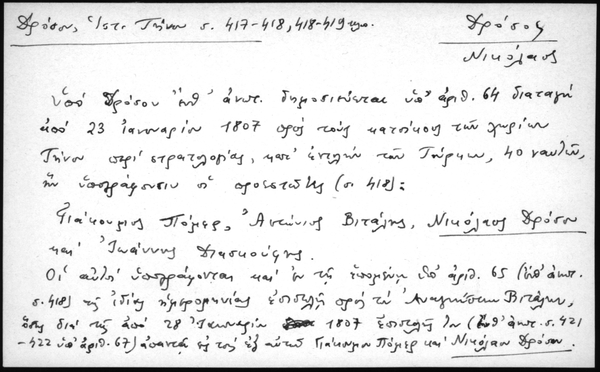 Δρόσου, Ἱστ. Τήνου σ. 417-418, 418-419
Δρόσος
Νικόλαος
Ὑπὸ Δρόσου ἔνθ' ἀνωτ. δημοσιεύεται ὑπ' ἀριθ. 64 διαταγὴ
ἀπὸ 23 Ἰανουαρίου 1807 πρὸς τοὺς κατοίκους τῶν χωρίων
Τήνου περὶ στρατολογίας, κατ' ἐντολὴν τῶν Τούρκων, 40 ναυτῶν,
ἣν ὑπογράφουσιν οἱ προεστῶτες (σ. 418):
Γιάκουμος Πώμερ, Ἀντώνιος Βιτάλης, Νικόλαος Δρόσου
καὶ Ἰωάννης
Οἱ αὐτοὶ ὑπογράφονται καὶ ἐν τῇ ἑπομένῃ ὑπ' ἀριθ. 65 (ἔνθ' ἀνωτ.
σ. 418) τῆς ἰδίας ἡμερομηνίας ἐπιστολῇ πρὸς τὸν Βιτάλην,
ὅστις διὰ τῆς ἀπὸ 28 Ἰανουαρίου 1807 ἐπιστολῆς του (ἔνθ' ἀνωτ. σ. 421
-422 ὑπ' ἀριθ. 67) ἀπαντᾷ εἰς τοὺς ἐξ αὐτῶν Γιάκουμον Πώμερ καὶ Νικόλαον Δρόσου.